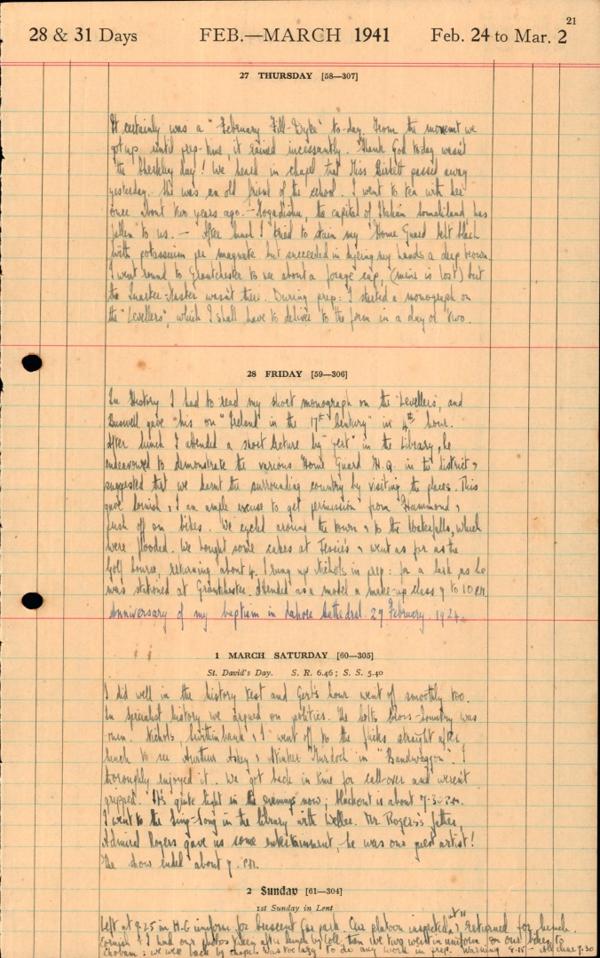 21
28 & 31 Days FEB.—MARCH 1941 Feb. 24 to Mar. 2
27 THURSDAY [58—307]
It certainly was a "February Fill-Dyke" to-day. From the moment we
got up until prep-time, it rained incessantly. Thank God today wasn't
the day! We heard in chapel that Miss Birkett passed away
yesterday. She was an old friend of the school. I went to tea with her
once about two years ago. — Mogadishu, the capital of Italian Somaliland has
fallen to us. — After lunch I tried to stain my Home Guard belt black
with potassium per magnate but succeeded in dyeing my hands a deep brown
I went round to Grantchester to see about a forage cap, (mine is lost) but
the Quarter-Master wasn't there. During prep: I started a monograph on
the "Levellers", which I shall have to deliver to the form in a day or two.
28 FRIDAY [59—306]
In History I had to read my short monograph on the "Levellers", and
gave his on "Ireland in the 17th Century" in 4th hour.
After lunch I attended a short lecture by in the Library, he
endeavoured to demonstrate the various Home Guard H.Q. in the district &
suggested that we learnt the surrounding country by visiting the places. This
gave Cornish & I an ample excuse to get permission from Hammond &
push off on bikes. We cycled around the town & to the which
were flooded. We bought some cakes at & went as far as the
Golf Course, returning about 4. I rang up Nichols in prep: for a lark, as he
was stationed at Grantchester. Attended as a model a make-up class 9 to 10 P.M.
Anniversary of my baptism in Lahore Cathedral. 29 February. 1924.
1 MARCH SATURDAY [60—305]
St. David's Day. S. R. 6.46; S. S. 5.40
I did well in the history test and hour went off smoothly too.
In specialist history we argued on politics. The Colts Cross-Country was
run. Nichols, & I went off to the flicks straight after
lunch to see Arthur Askey & Stinker Murdoch in "Bandwaggon". I
thoroughly enjoyed it. We got back in time for call-over and weren't
gripped. It's quite light in the evenings now; blackout is about 7-30 P.M.
I went to the Sing-Song in the Library with Mr. Rogers's father,
Admiral Rogers gave us some entertainment, he was our guest artist!
The show ended about 9. P.M.
2 Sunday [61—304]
1st Sunday in Lent
Left at 9.25 in H.G uniform for Crescent Car park. Our platoon inspected, & returned for lunch.
Cornish & I had our photos taken after lunch by then we two went in uniform on our bikes to
Chobham; we were back by chapel. Was too lazy to do any work in prep. Warning 8-15 — All clear 9.30